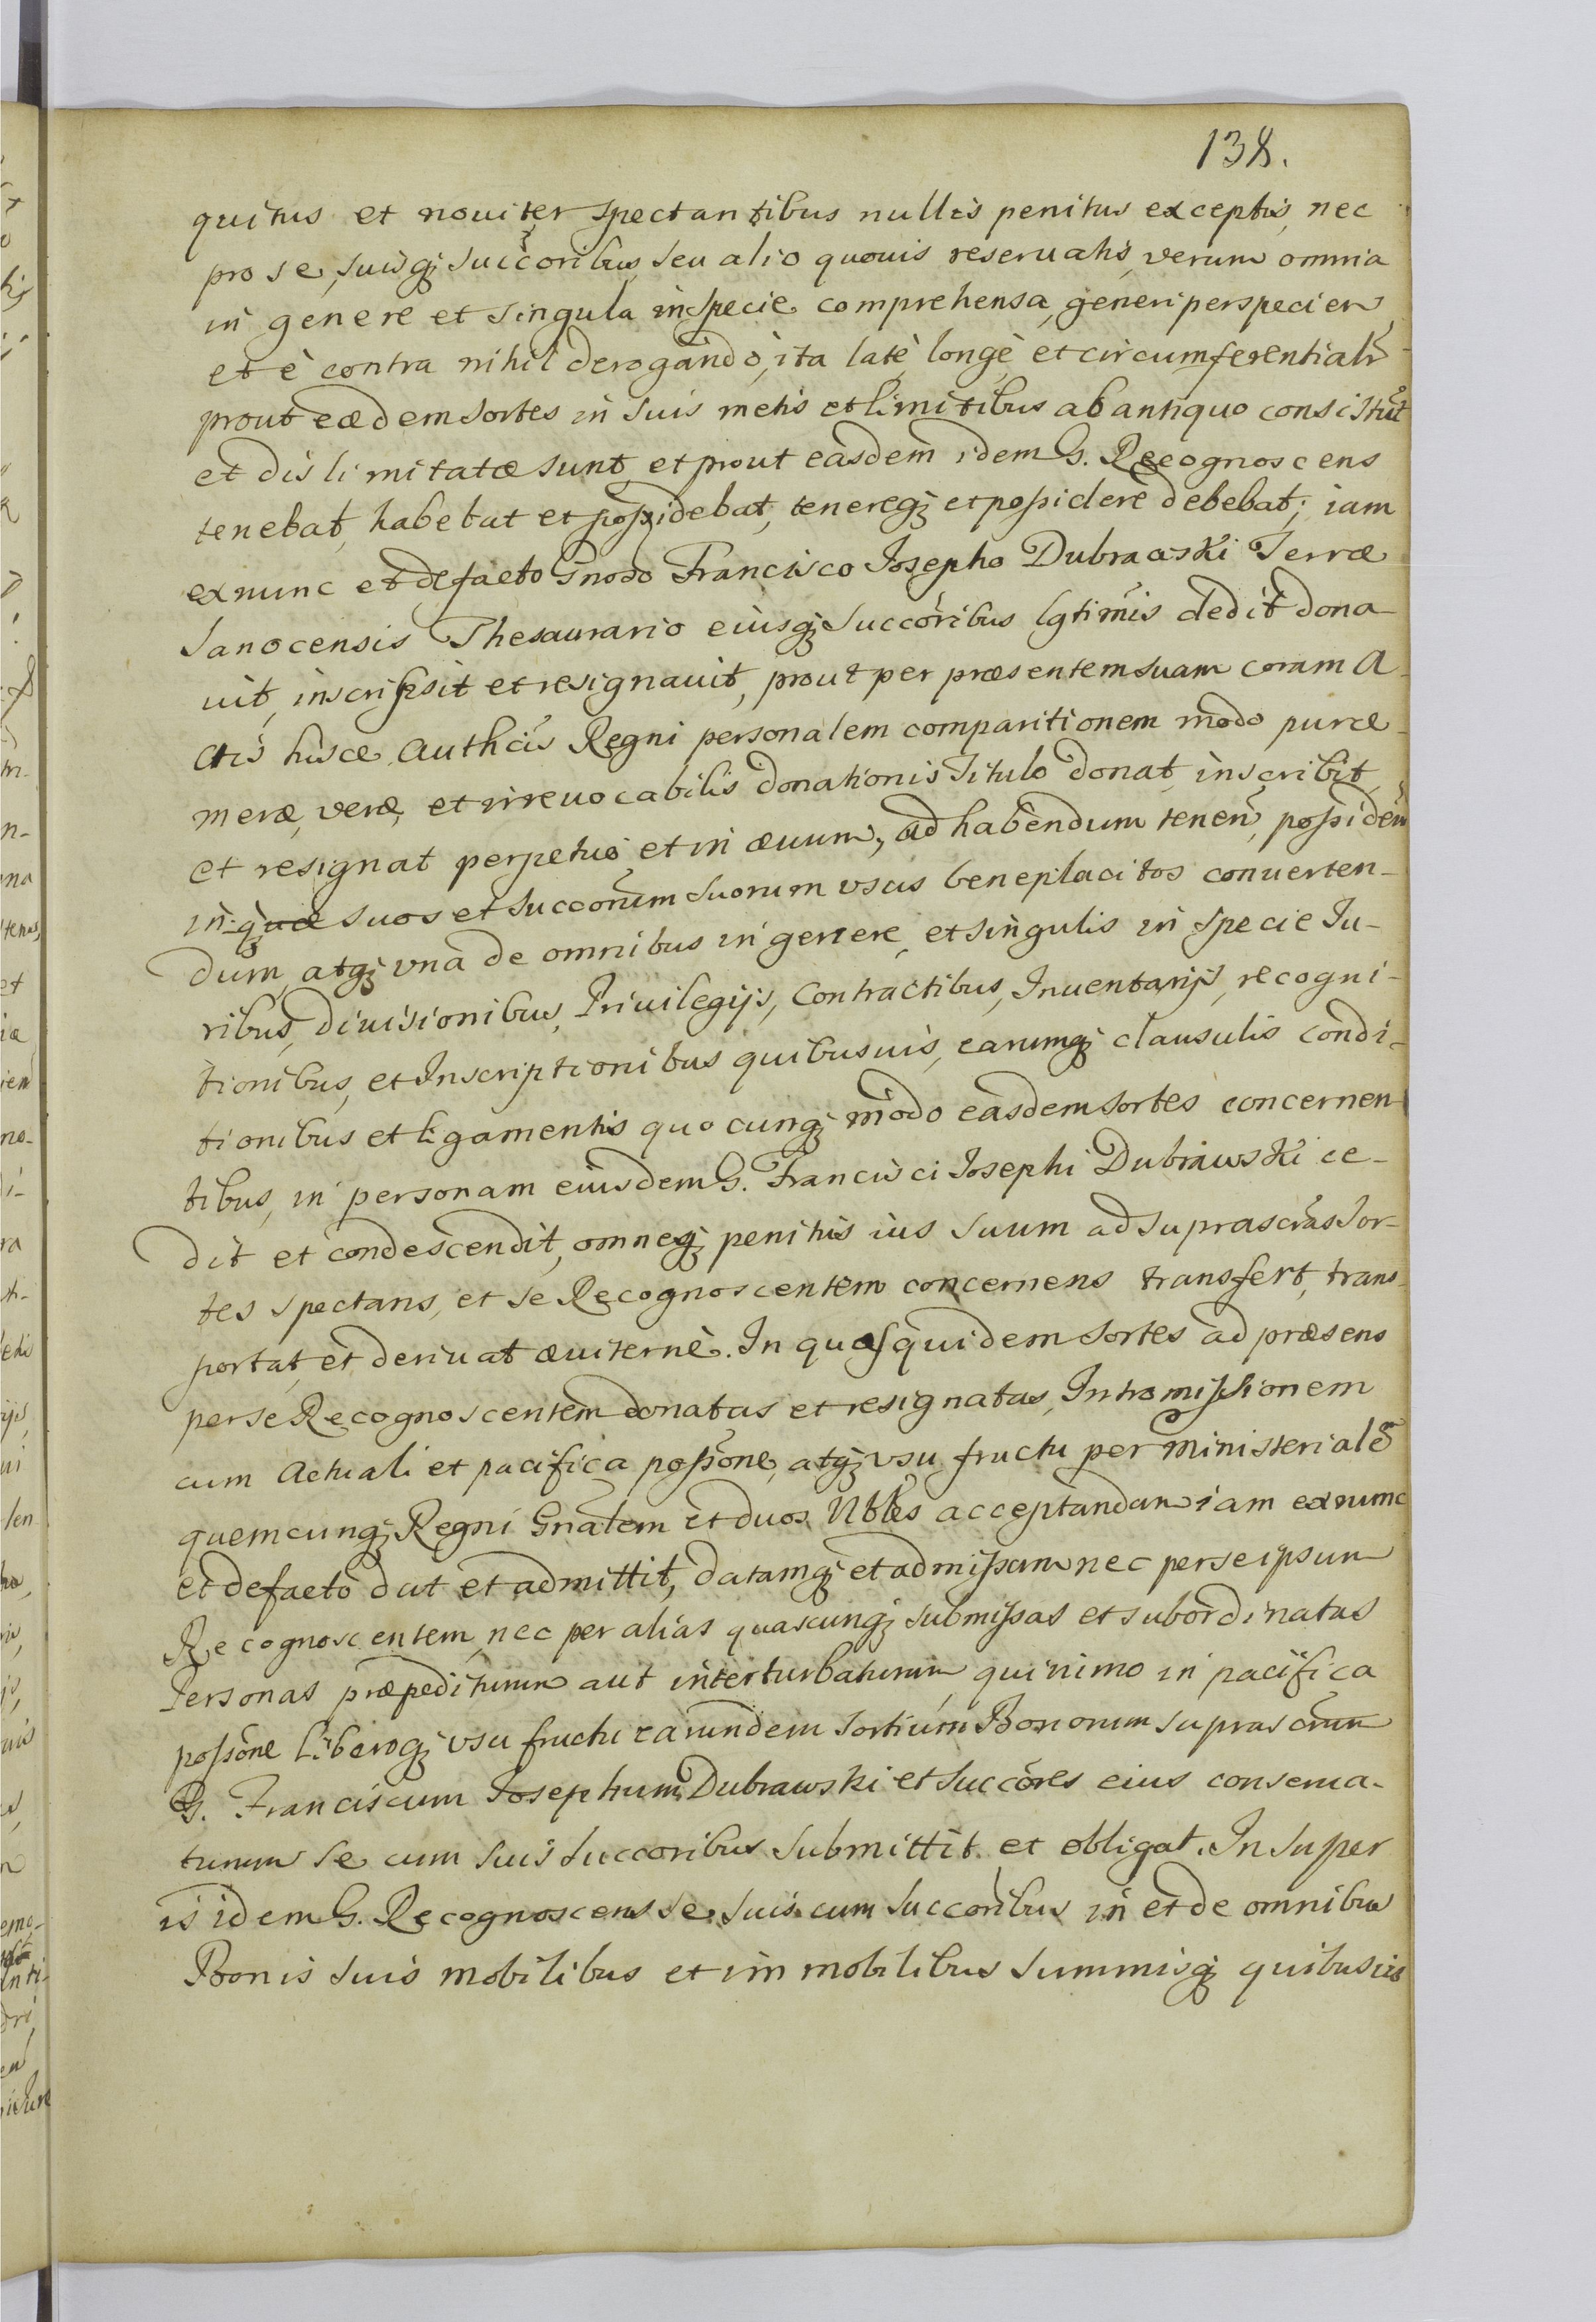 138.
quitus et nouiter spectantibus nullis penitus exceptis, nec
pro se, suisq; succoribus, seu alio quouis reseruatis, verum omnia
in genere et singula in specie comprehensa, generi per speciem
et è contra nihil derogando, ita latè, longè, et circumferentialr
prout eædem sortes in suis metis et limitibus ab antiquo consistut
et dislimitatæ sunt, et prout easdem idem G. Recognoscens
tenebat, habebat et possidebat, tenereq; et possidere debebat; iam
ex nunc et de facto Gnoso Francisco Josepho Dubrawski Terræ
Sanocensis Thesaurario eiusq; succoribus lgtimis dedit dona
uit, inscripsit et resignauit, prout per præsentem suam coram A
ctis hisce Authcis Regni personalem comparitionem modo puræ
meræ, veræ, et irreuocabilis donationis Titulo donat, inscribit,
et resignat perpetuò et in æuum, ad habendum tenen, possiden
inq; suos et succorum suorum vsus beneplacitos conuerten-
dum, atq; vna de omnibus in genere, et singulis in specie Iu-
ribus, diuisionibus, Priuilegijs, Contractibus, Inuentarijs, recogni-
tionibus, et Inscriptionibus quibusuis, earumq; clausulis condi-
tionibus et ligamentis quocunq; modo easdem sortes concernen
tibus, in personam eiusdem G. Francisci Josephi Dubrawski ce-
dit et condescendit, omneq; penitus ius suum ad suprascras sor-
tes spectans, et se Recognoscentem concernens transfert, trans-
portat, et deriuat æuiternè. In quas quidem sortes ad præsens
per se Recognoscentem donatas et resignatas, Intromissionem
cum actuali et pacifica possone, atq; vsu fructu per Ministeriale
quemcunq; Regni Gnalem et duos Nbles acceptandam iam ex nunc
et de facto dat et admittit, datamq; et admissam nec per se ipsum
Recognoscentem, nec per alias quascunq; submissas et subordinatas
Personas præpediturum aut interturbaturum, quinimo in pacifica
possone liberoq; vsu fructu earundem sortium Bonorum suprascrum
G. Franciscum Josephum Dubrawski et succores eius conserua-
turum se cum suis succoribus submittit et obligat. Insuper
is idem G. Recognoscens se suis cum succoribus in et de omnibus
Bonis suis mobilibus et immobilibus summisq; quibusuis